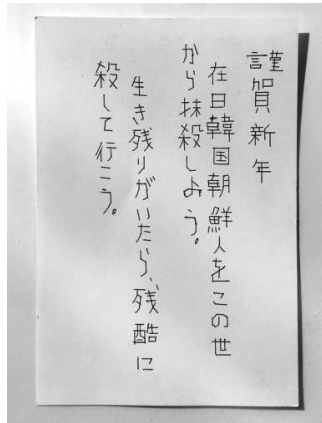 謹賀新年
在日韓国朝鮮人をこの世
から抹殺しよう。
生き残りがいたら、残酷に
殺して行こう。